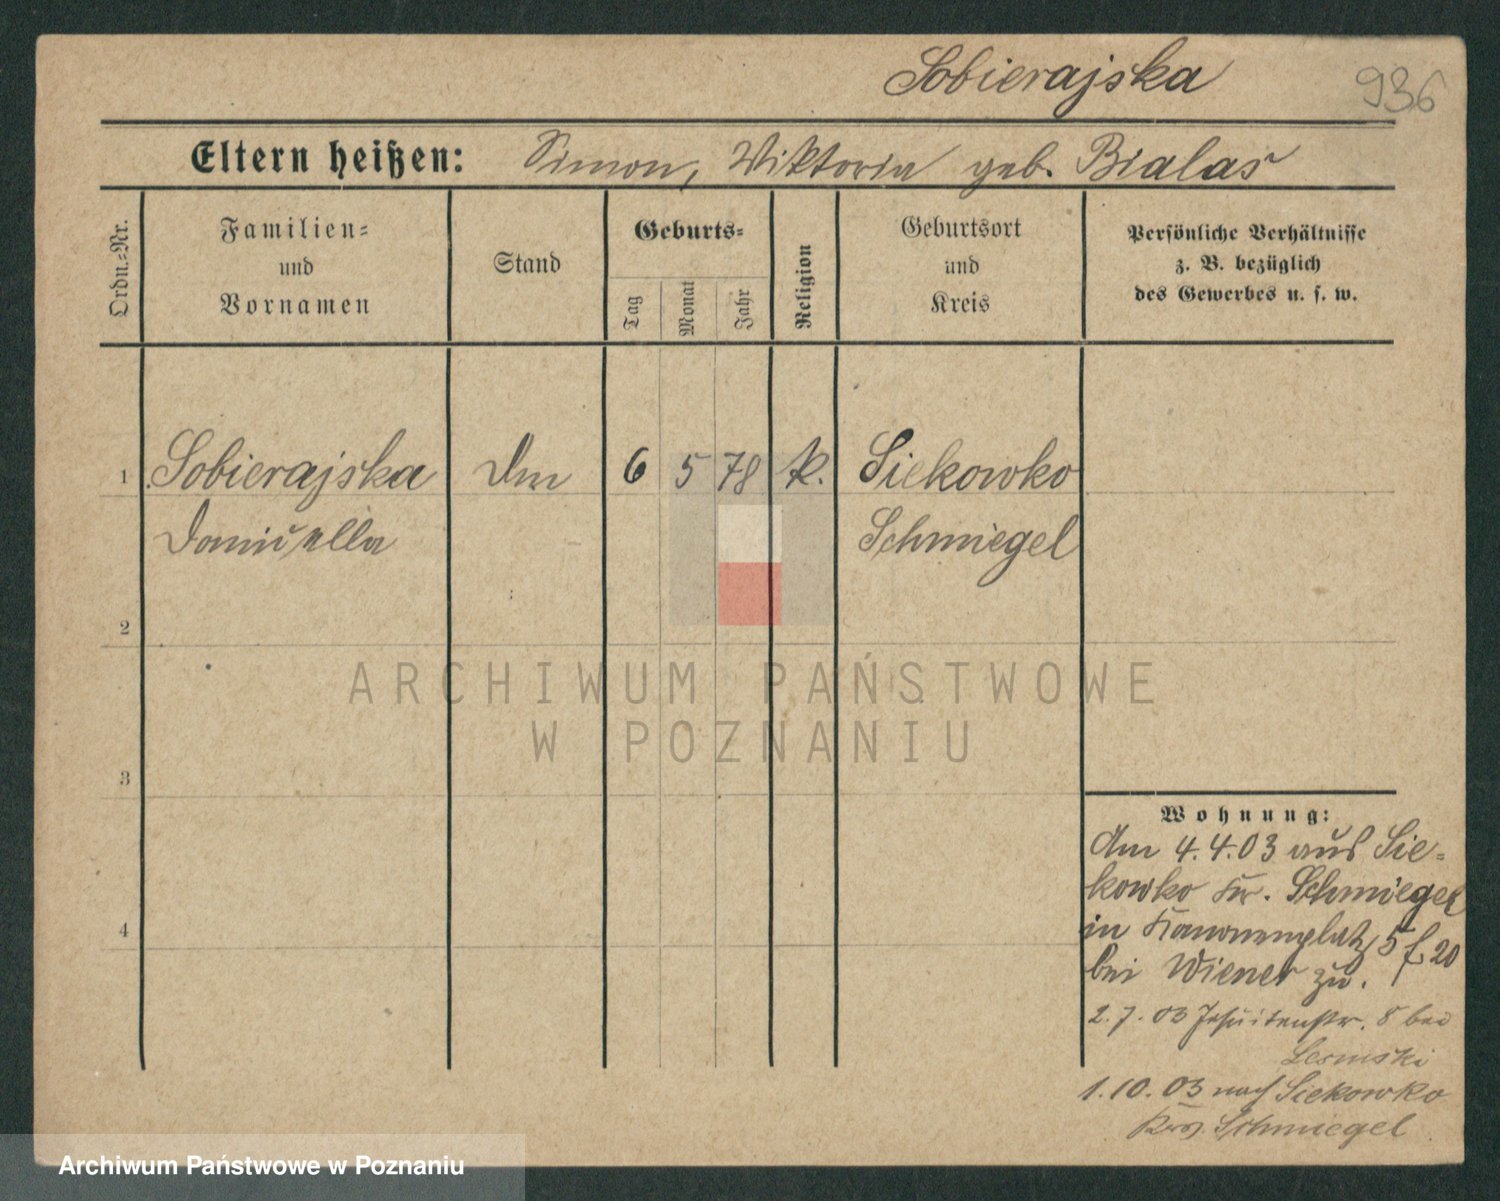 Sobierajska
936
Eltern heißen: Simon, Wiktoria geb. Bialas
Ordn.-Nr.
Familien-
und
Vornamen
Stand
Geburts-
Tag
Monat
Jahr
Religion
Geburtsort
und
Kreis
Persönliche Verhältnisse
z. B. bezüglich
des Gewerbes u. s. w.
1 Sobierajska 6 5 78 k. Siekowko
Schmiegel
2
3
4
Wohnung:
Am 4.4.03 aus Sie-
kowko Kr. Schmiegel
in Kanonenplatz 5
bei Wiener zu.
2.7.03 Jesuitenstr. 8 bei
1.10.03 nach Siekowko
Schmiegel
ARCHIWUM PAŃSTWOWE
W POZNANIU
Archiwum Państwowe w Poznaniu